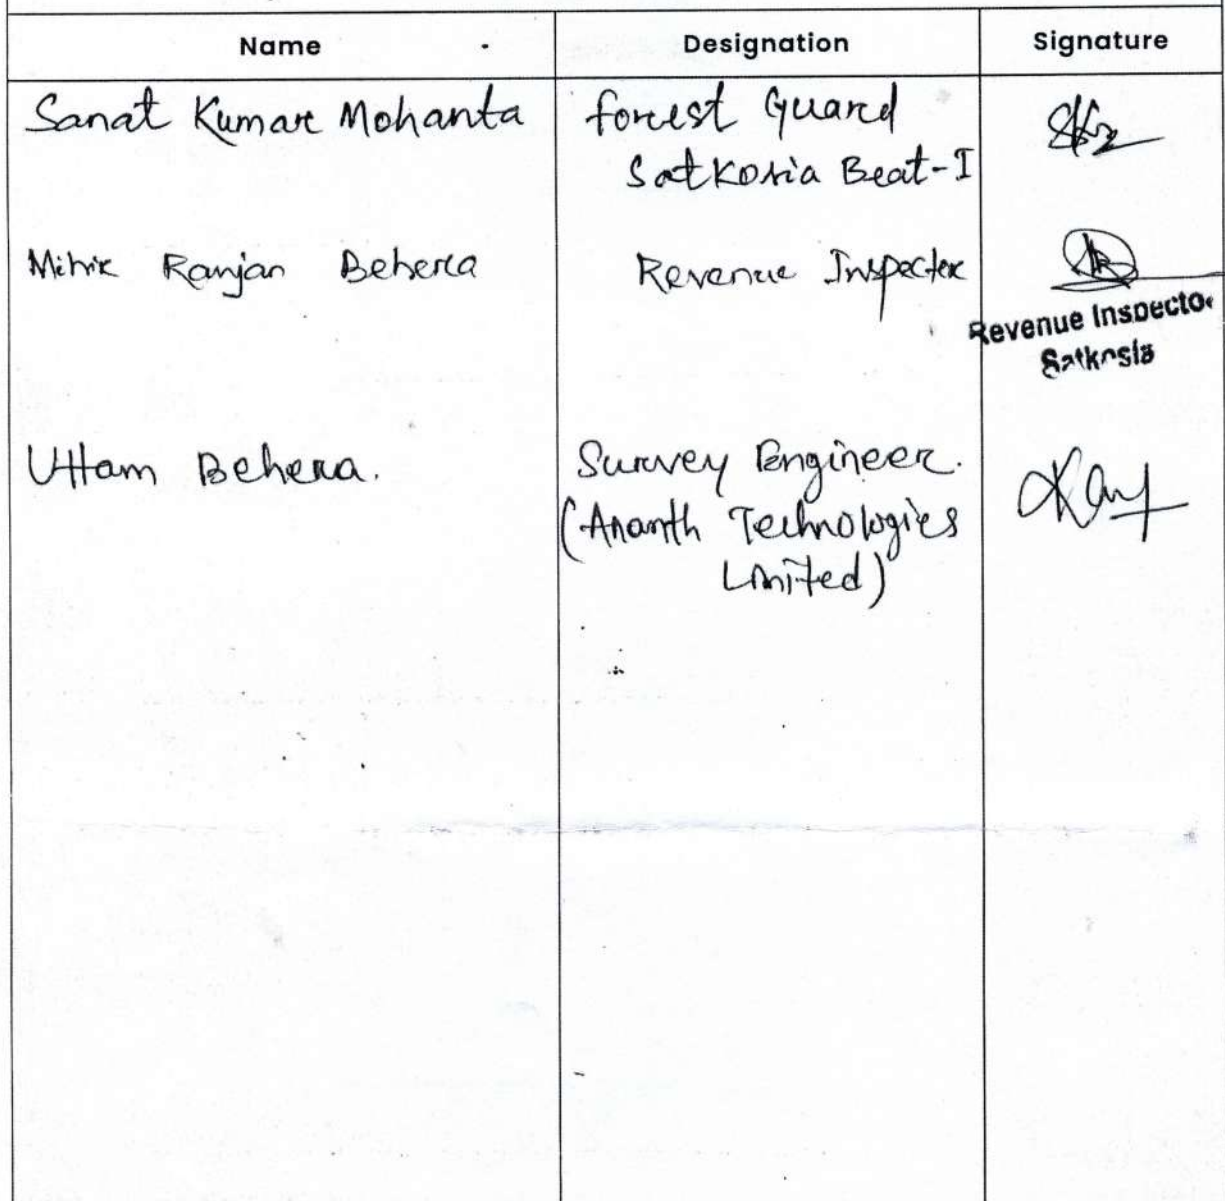 Name Designation Signature
Sanat Kumar Mohanta Forest Guard
Satkosia Beat-I
Mihir Ranjan Behera Revenue Inspector
Revenue Inspector
Satkosia
Uttam Behera. Survey Engineer.
(Ananth Technologies
Limited)